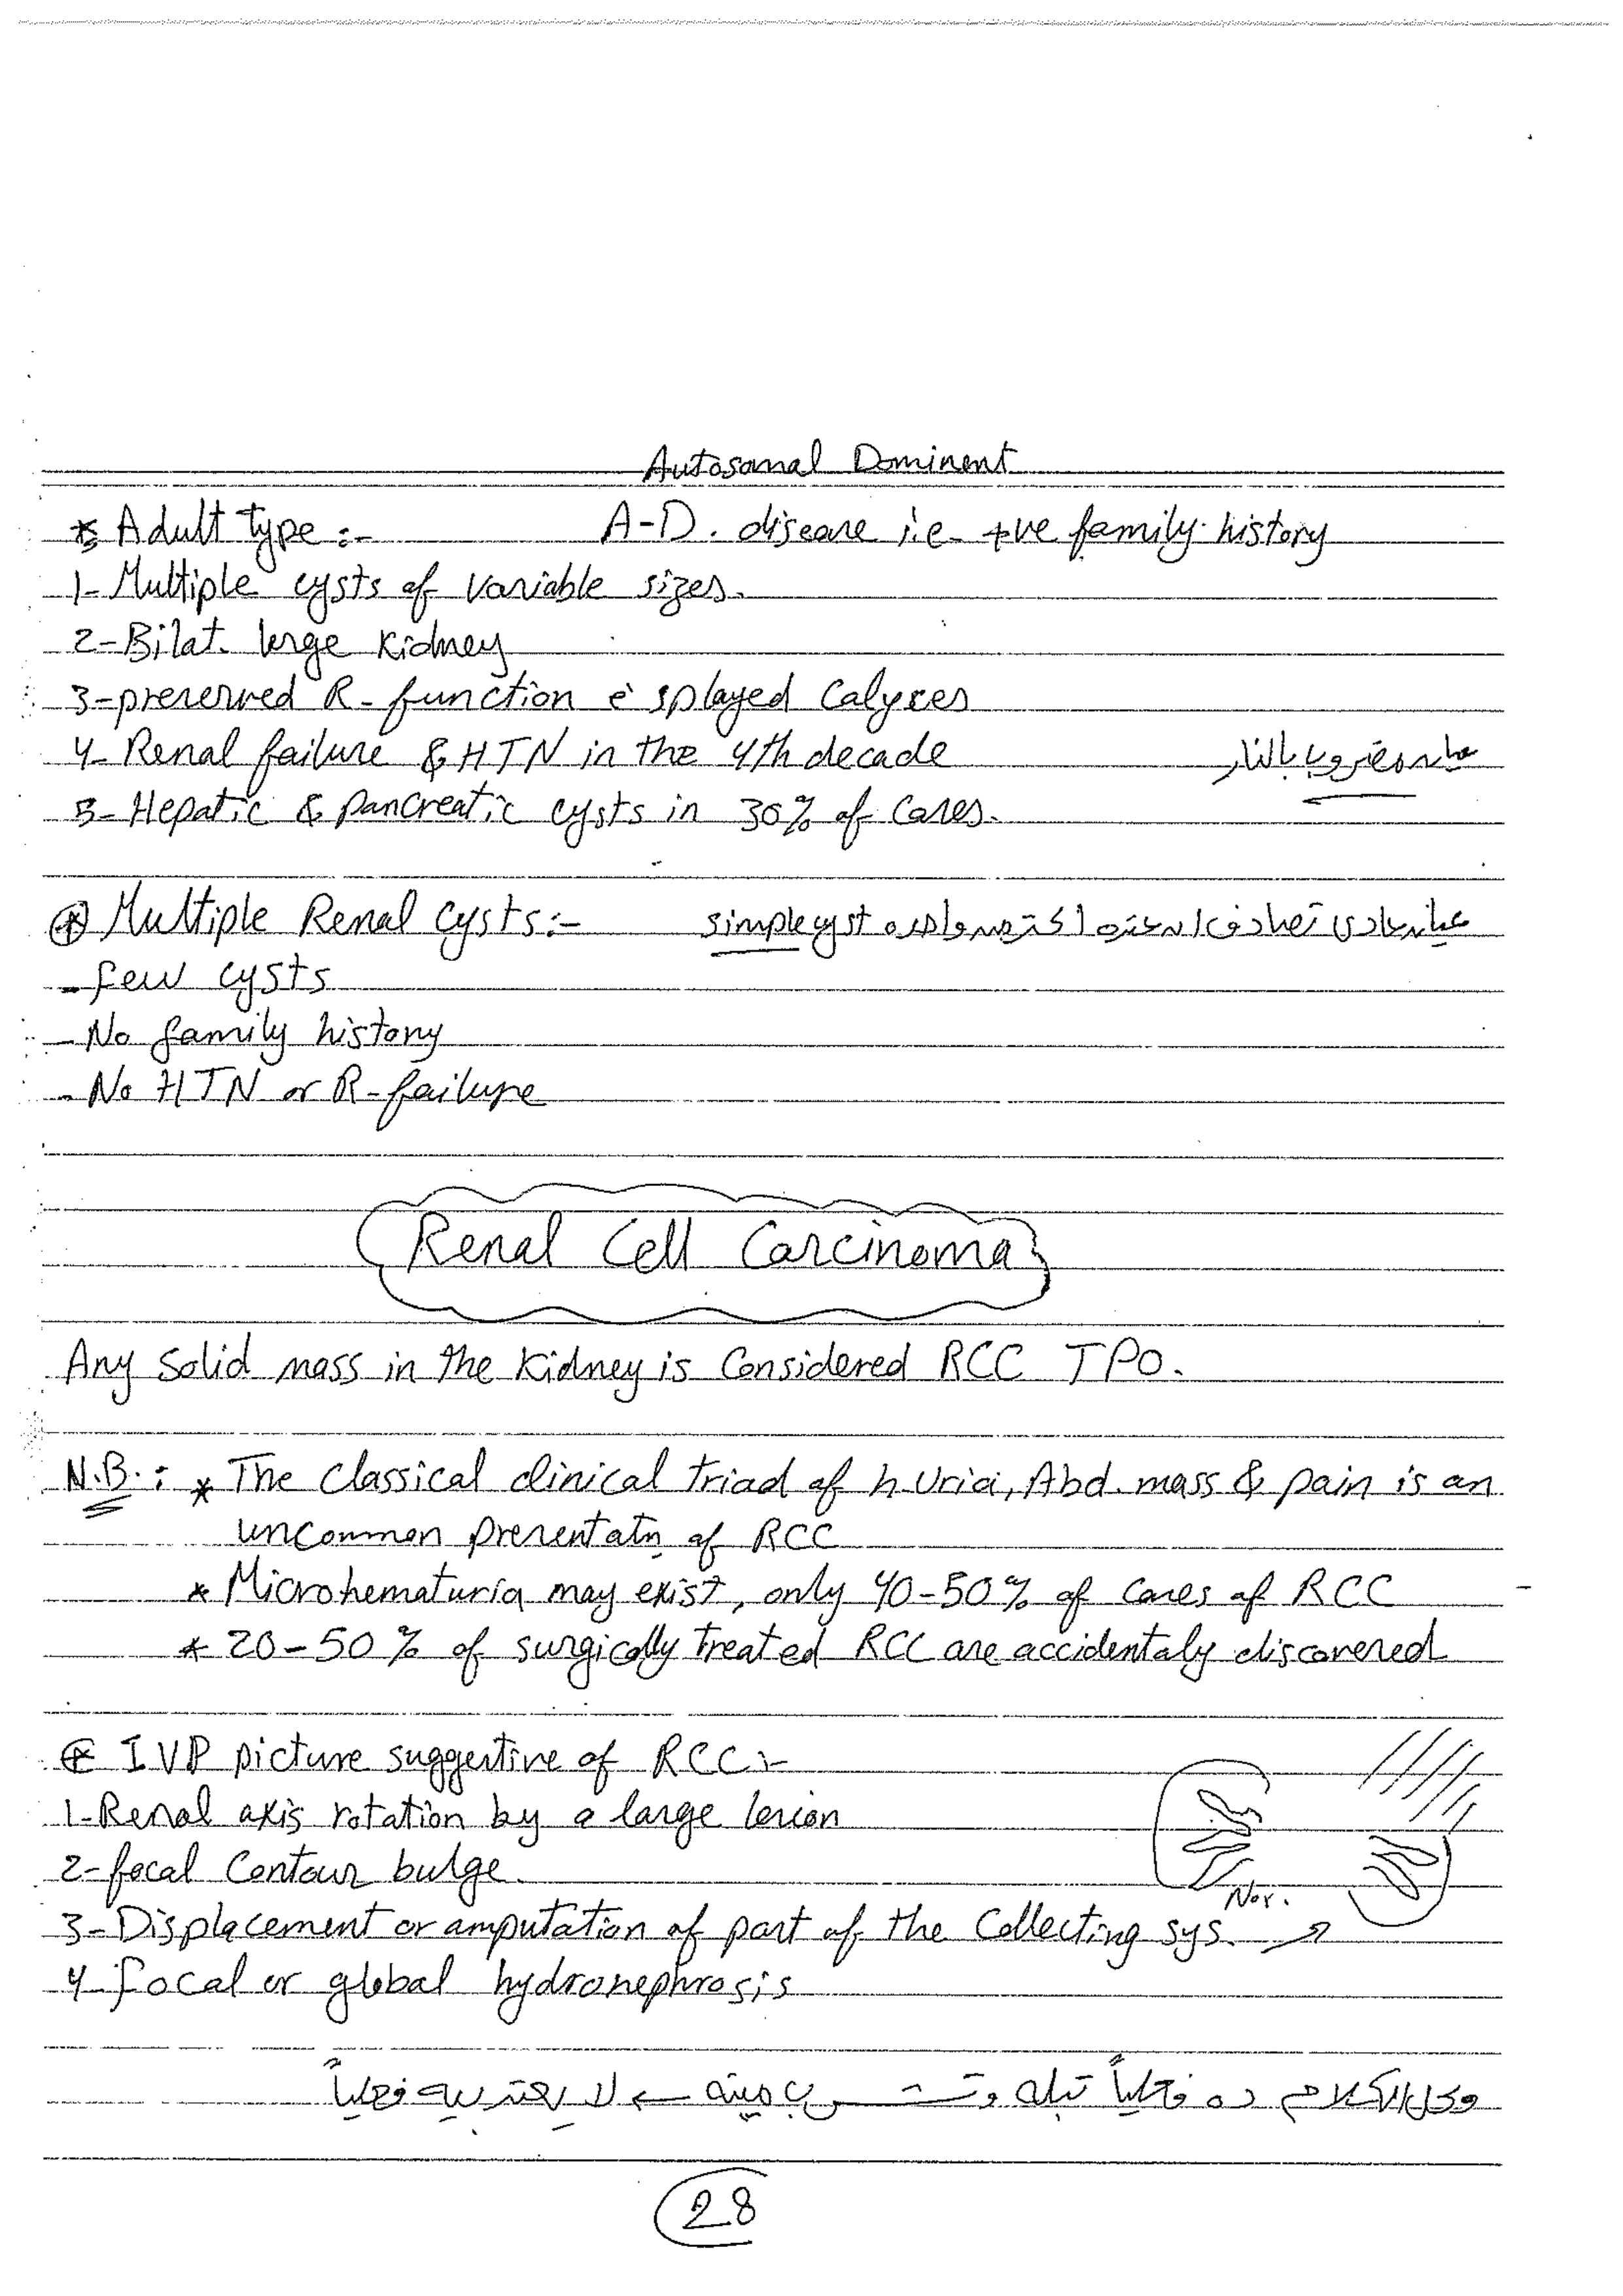 Autosomal Dominent
* Adult type :- A-D. disease i.e. +ve family history
1- Multiple cysts of variable sizes.
2- Bilat. large Kidney
3- preserved R-function è splayed Calyces
4- Renal failure & HTN in the 4th decade بالنار
5- Hepatic & pancreatic cysts in 30% of Cases.
* Multiple Renal Cysts :- عيان عادى تصادف ان عنده اكتر من واحده simple cyst
- few cysts
- No family history
- No HTN or R-failure
Renal Cell Carcinoma
Any Solid mass in the Kidney is Considered RCC TPO.
N.B.: * The Classical clinical triad of h.Uria, Abd. mass & pain is an
uncommon presentatn of RCC
* Microhematuria may exist, only 40-50% of cases of RCC
* 20-50% of surgically treated RCC are accidentaly discovered
* IVP picture suggestive of RCC :-
1- Renal axis rotation by a large lesion
2- focal Contour bulge.
Nor.
3- Displacement or amputation of part of the Collecting sys. →
4- focal or global hydronephrosis
وكل الكلام ده ← لا يعتد بيه
28